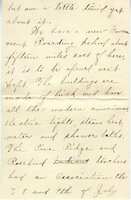 but am a little tired yet
about it.
We have a new Govern
ment Boarding School about
fifteen miles east of here,
it is to be opened next
Sept. The buildings are
made of brick and have
all the modern conveniences
electric lights steam heat
water and shower baths
The Pine Ridge and
Rosebud teachers
had an association the
7 8 and 9th of July